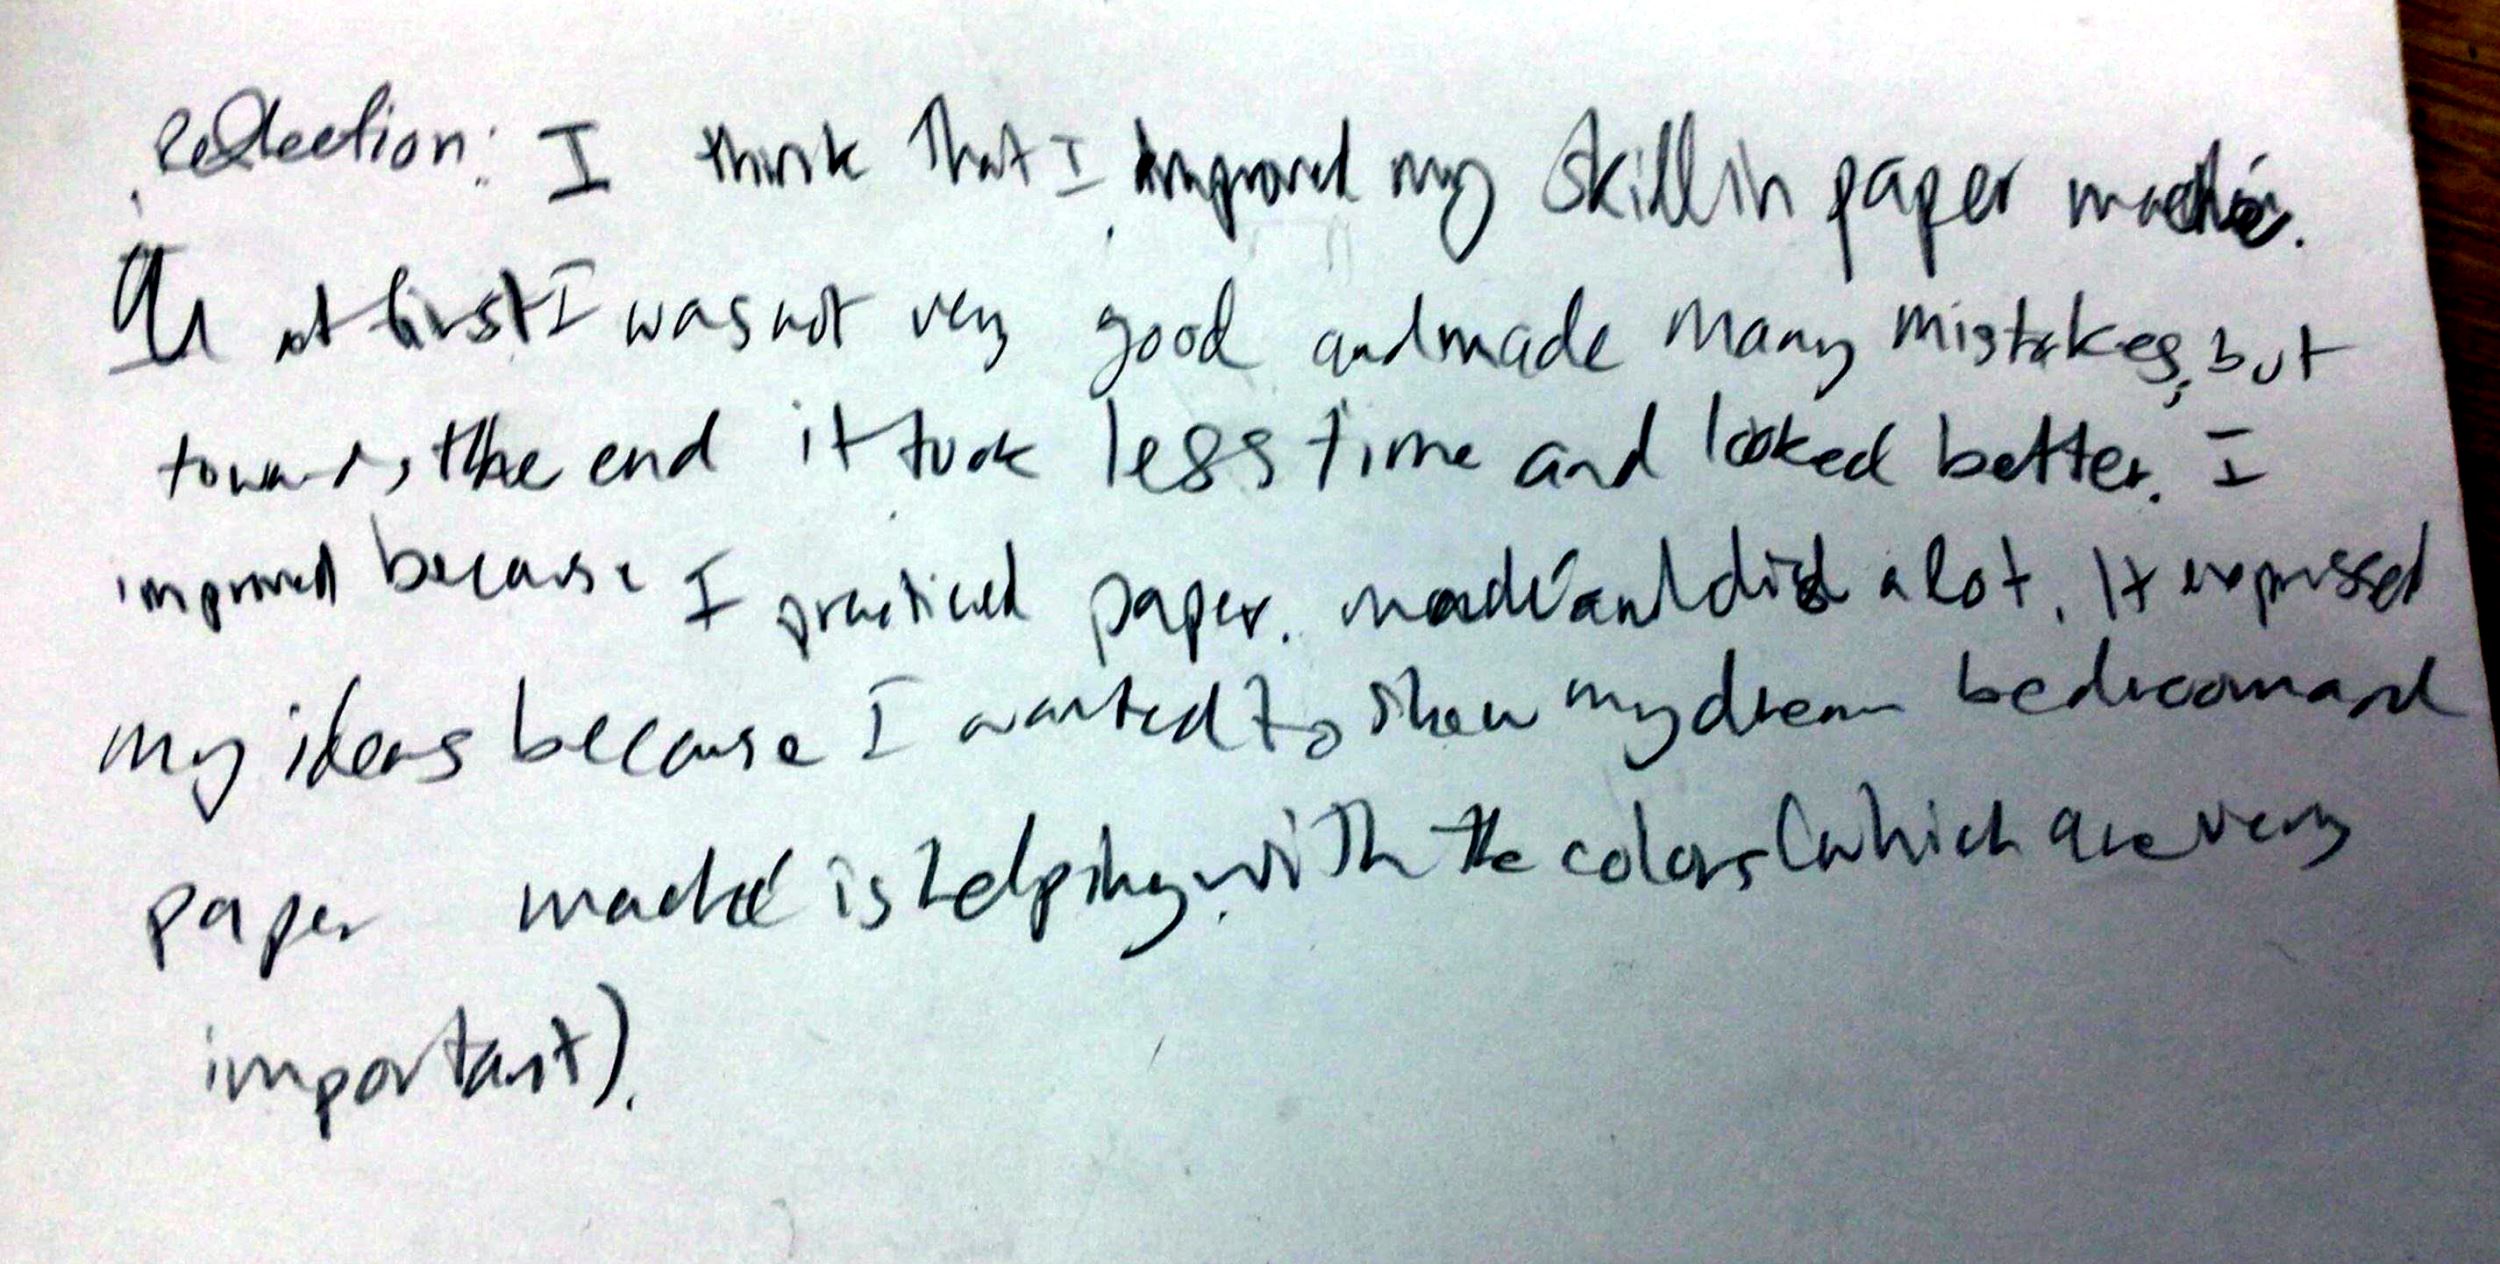 reflection: I think that I improved my skill in paper maché.
at first I was not very good and made many mistakes, but
towards the end it took less time and looked better. I
improved because I practiced paper maché and did a lot. It expressed
my ideas because I wanted to show my dream bedroom and
paper maché is helping with the colors (which are very
important).